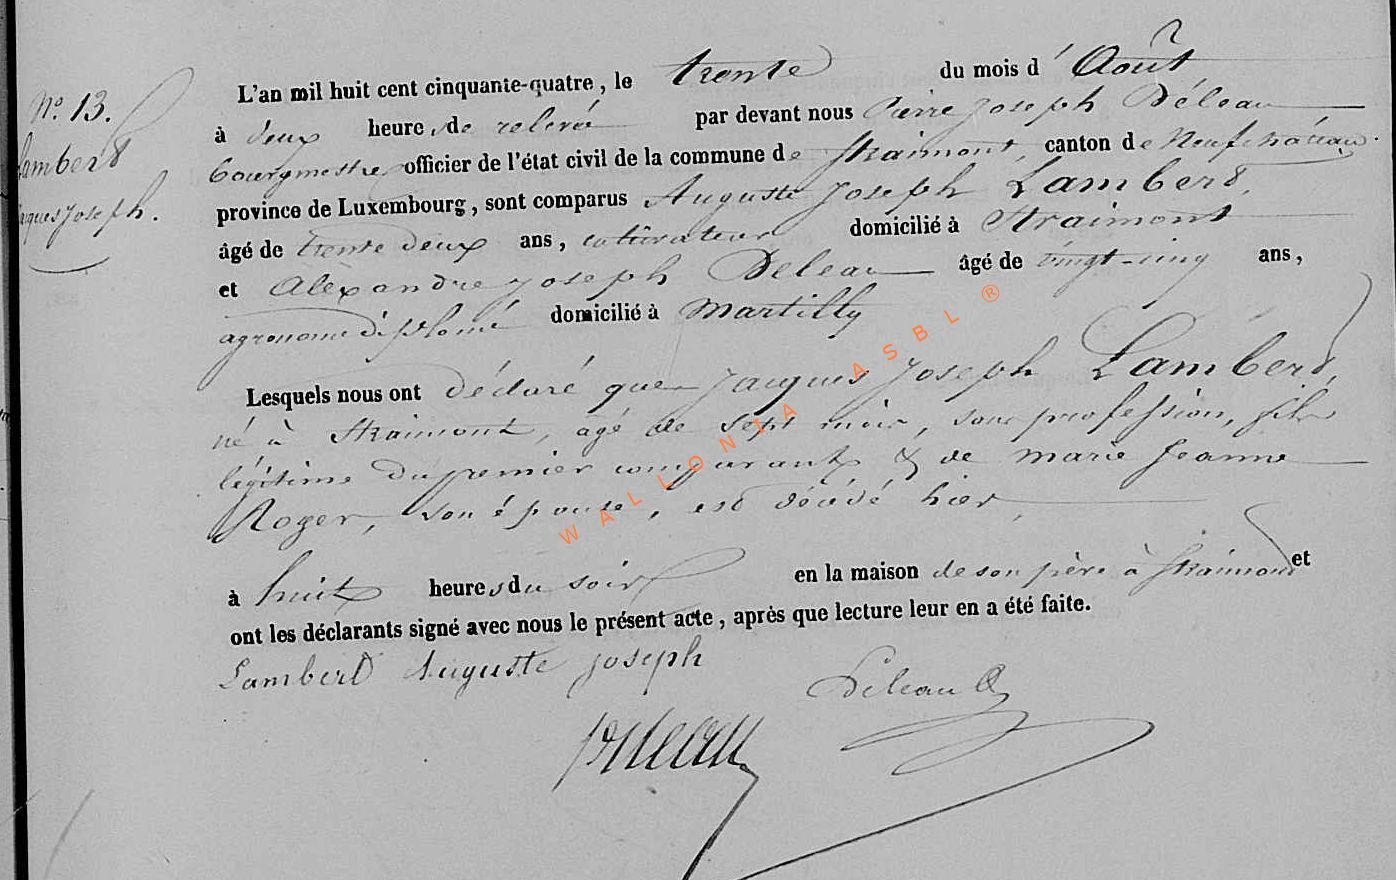 N.° 13.
Lambert
Jacques Joseph.
L'an mil huit cent cinquante-quatre, le trente du mois d'Août
à deux heures de relevée par devant nous Pierre Joseph Déleau
bourgmestre officier de l'état civil de la commune de Straimont, canton de Neufchâteau.
province de Luxembourg, sont comparus Auguste Joseph Lambert,
âgé de trente deux ans, cultivateur domicilié à Straimont
et Alexandre Joseph Deleau âgé de vingt-cinq ans,
agronome diplomé domicilié à Martilly
Lesquels nous ont déclaré que Jacques Joseph Lambert,
né à Straimont, agé de sept mois, sans profession, fils
légitime du premier comparant & de marie Jeanne
Roger, son épouse, est décédé hier,
à huit heures du soir en la maison de son père à Straimont et
ont les déclarants signé avec nous le présent acte, après que lecture leur en a été faite.
Lambert Auguste Joseph
Déleau A
PJDeleau
WALLONIA ASBL ®